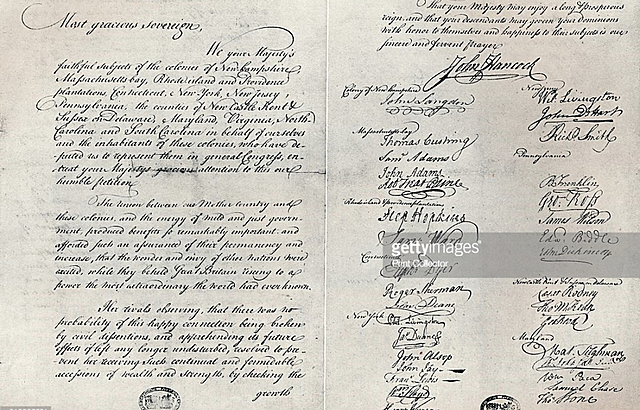 Most gracious Sovereign,
We your Majesty's
faithful subjects of the colonies of New Hampshire,
Massachusetts bay, Rhode island and Providence
plantations, Connecticut, New York, New Jersey,
Pennsylvania, the counties of New Castle Kent &
Sussex on Delaware, Maryland, Virginia, North
Carolina and South Carolina in behalf of ourselves
and the inhabitants of these colonies, who have de-
puted us to represent them in general Congress, en-
treat your Majestys gracious attention to this our
humble petition.
The union between our Mother country and
these colonies, and the energy of mild and just govern-
ment, produced benefits so remarkably important, and
afforded such an assurance of their permanency and
increase, that the wonder and envy of other nations were
excited, while they beheld Great Britain riseing to a
power the most extraordinary the world had ever known.
Her rivals observing, that there was no
probability of this happy connection being broken
by civil dissentions, and apprehending its future
effects if left any longer undisturbed, resolved to pre-
vent her receiving such continual and formidable
accessions of wealth and strength, by checking the
growth
that your Majesty may enjoy a long & prosperous
reign, and that your descendants may govern your dominions
with honor to themselves and happiness to their subjects is our
sincere and fervent prayer.
John Hancock
Colony of New hampshire
John Langdon
Massachusetts bay
Thomas Cushing
Saml Adams
John Adams
Robt Treat Paine
Rhode island & providence plantations
Step Hopkins
Sam: Ward
Connecticut
Elipht Dyer
Roger Sherman
Silas Deane
New York
Phil. Livingston
Jas Duane
John Alsop
John Jay
Frans Lewis
New Jersey
Wil: Livingston
John De Hart
Richd Smith
Pennsylvania
B Franklin
Geo: Ross
James Wilson
Edwd Biddle
John Dickinson
Cæsar Rodney
Tho McKean
Geo Read
Maryland
Mat. Tilghman
Wm Paca
Samuel Chase
Thos Stone
gettyimages
Print Collector